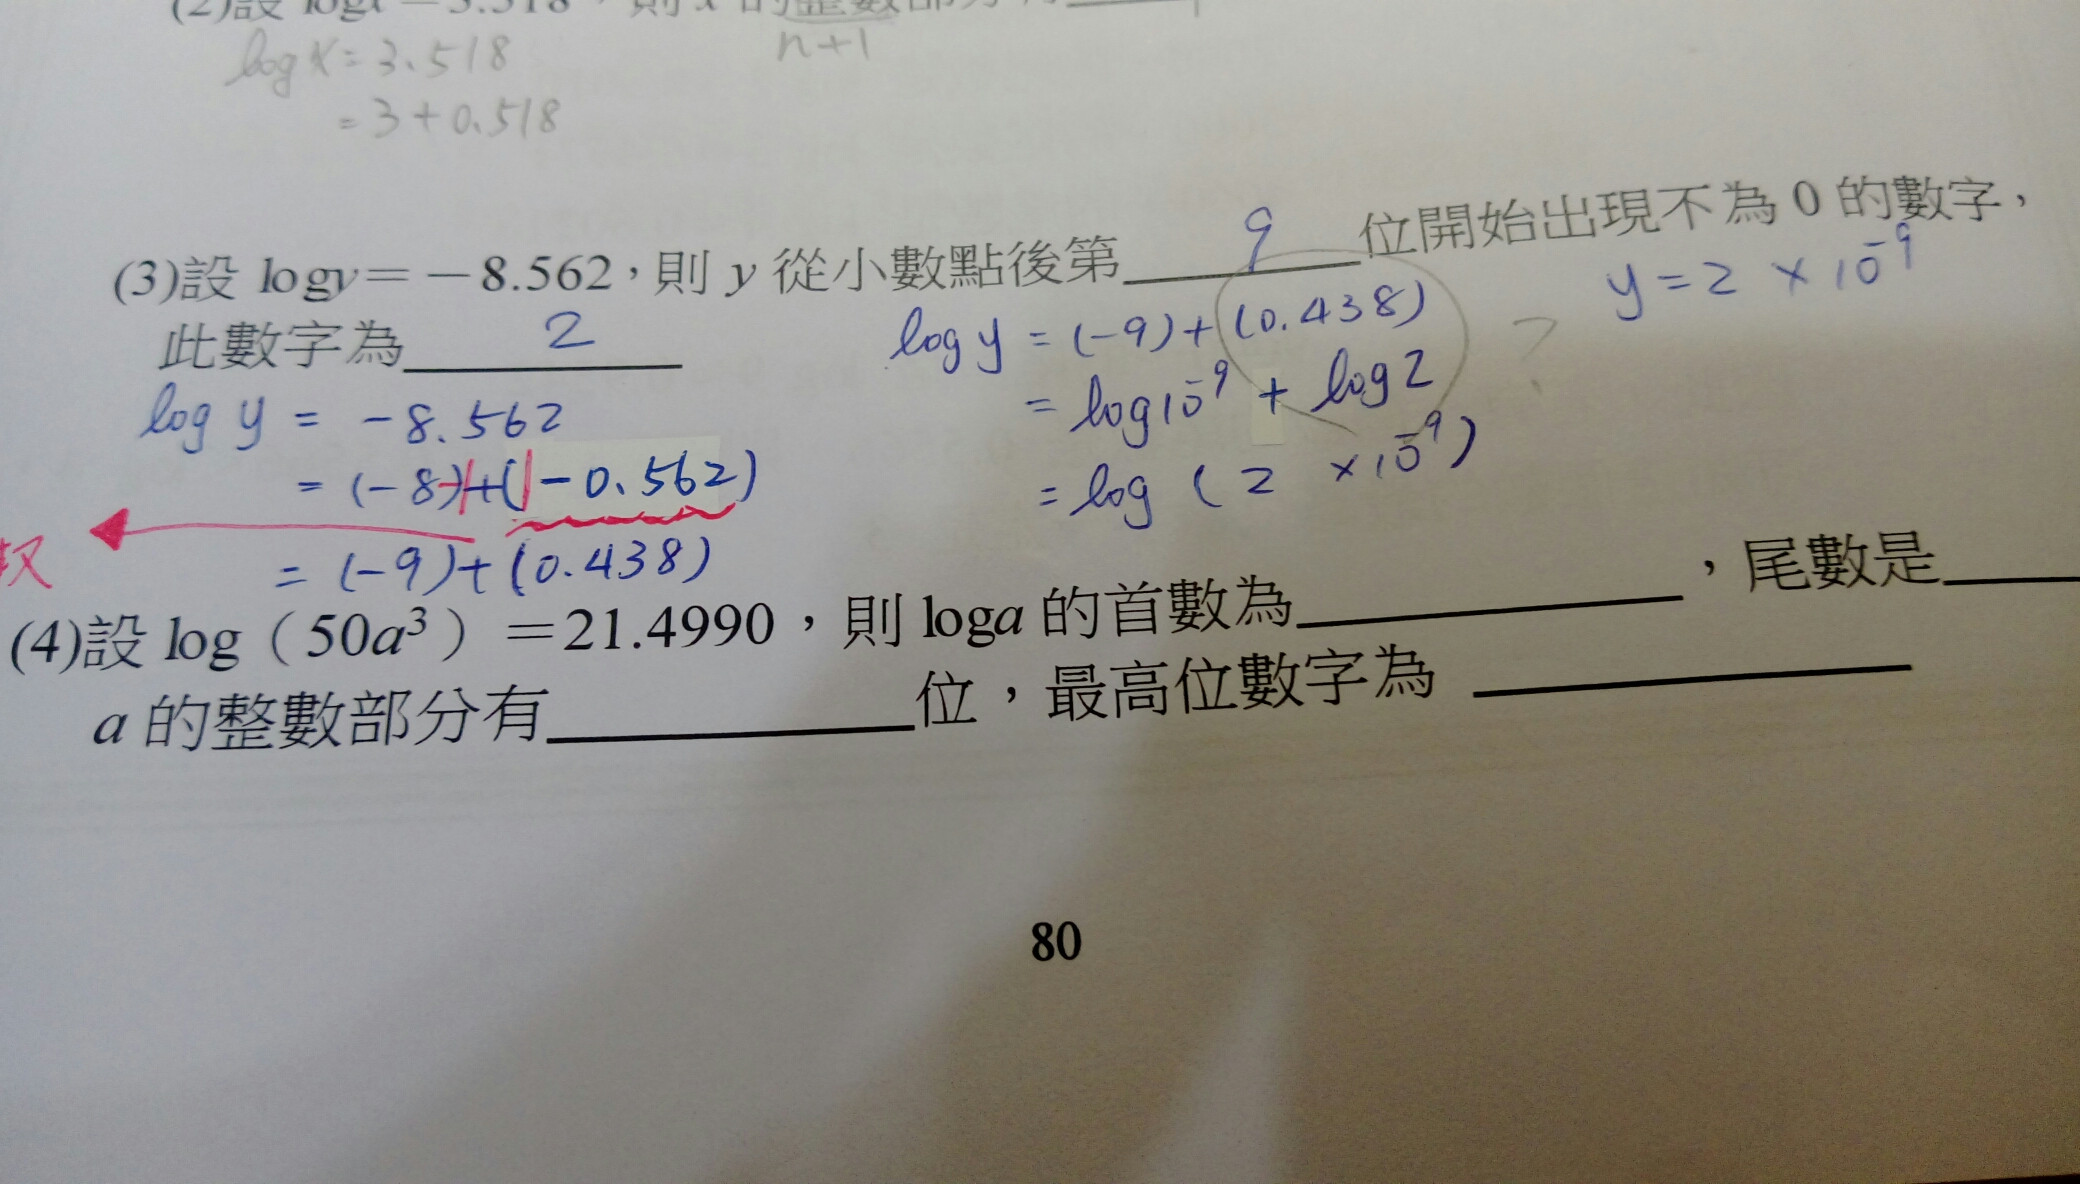 (2)設 logx=3.518,則 x 的整數部分有
log x = 3.518
n+1
= 3+0.518
(3)設 logy=-8.562,則 y 從小數點後第 9 位開始出現不為 0 的數字,
此數字為 2
log y = -8.562
= (-8)-1+(1-0.562)
= (-9)+(0.438)
log y = (-9)+(0.438)
= log10⁻⁹ + log2
= log ( 2 ×10⁻⁹)
?
y=2 × 10⁻⁹
(4)設 log(50a³)=21.4990,則 loga 的首數為 ,尾數是
a 的整數部分有 位,最高位數字為
80